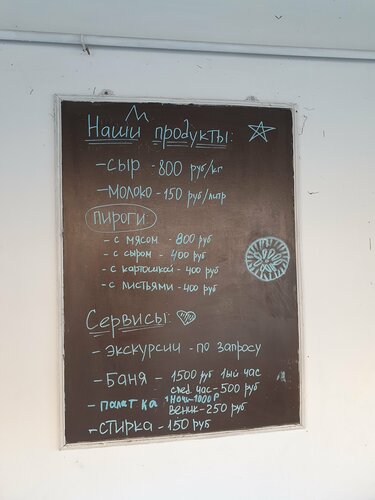 Наши продукты:
- сыр - 800 руб/кг
- молоко - 150 руб/литр
пироги:
- с мясом - 800 руб
- с сыром - 400 руб
- с картошкой - 400 руб
- с листьями - 400 руб
Сервисы:
- экскурсии - по запросу
- баня - 1500 руб 1ый час
след. час - 500 руб
- палатка 1 ночь - 1000 р
веник - 250 руб
- стирка - 150 руб